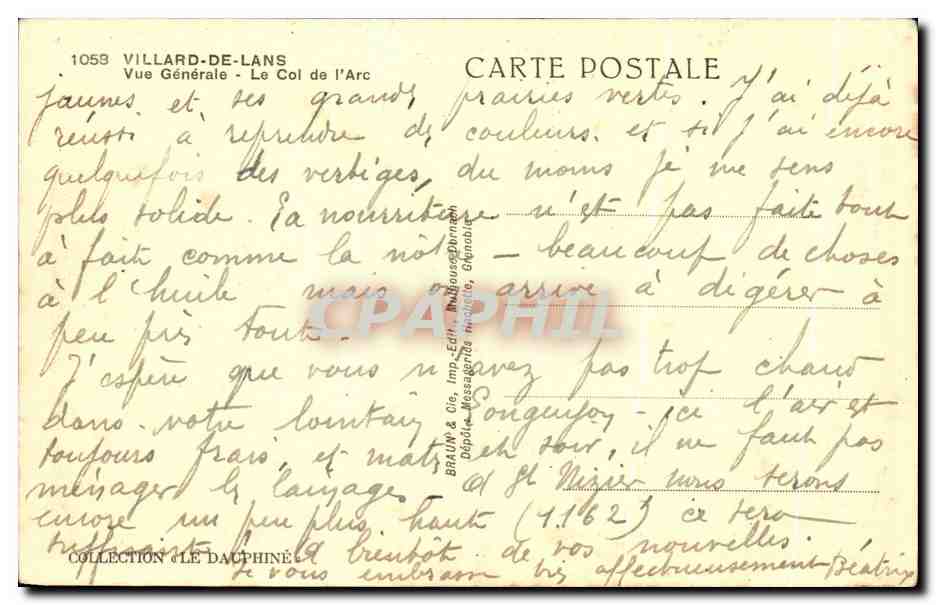 1053 VILLARD-DE-LANS
Vue Générale - Le Col de l'Arc
CARTE POSTALE
jaunes et ses grandes prairies vertes. J'ai déjà
réussi à reprendre des couleurs. et si j'ai encore
quelquefois des vertiges, du moins je me sens
plus solide. La nourriture n'est pas faite tout
à fait comme la nôtre - beaucoup de choses
à l'huile mais on arrive à digérer à
peu près tout.
J'espère que vous n'avez pas trop chaud
dans votre lointain Longuyon - ici l'air est
toujours frais, et matin et soir, il ne faut pas
ménager les lainages - A St Nizier nous serons
encore un peu plus haut (1.162) ce sera
A bientôt de vos nouvelles.
Je vous embrasse très affectueusement Béatrix
BRAUN & Cie, Imp.-Edit., Mulhouse-Dornach
Dépôt : Messageries Hachette, Grenoble
COLLECTION «LE DAUPHINÉ»
CPAPHIL